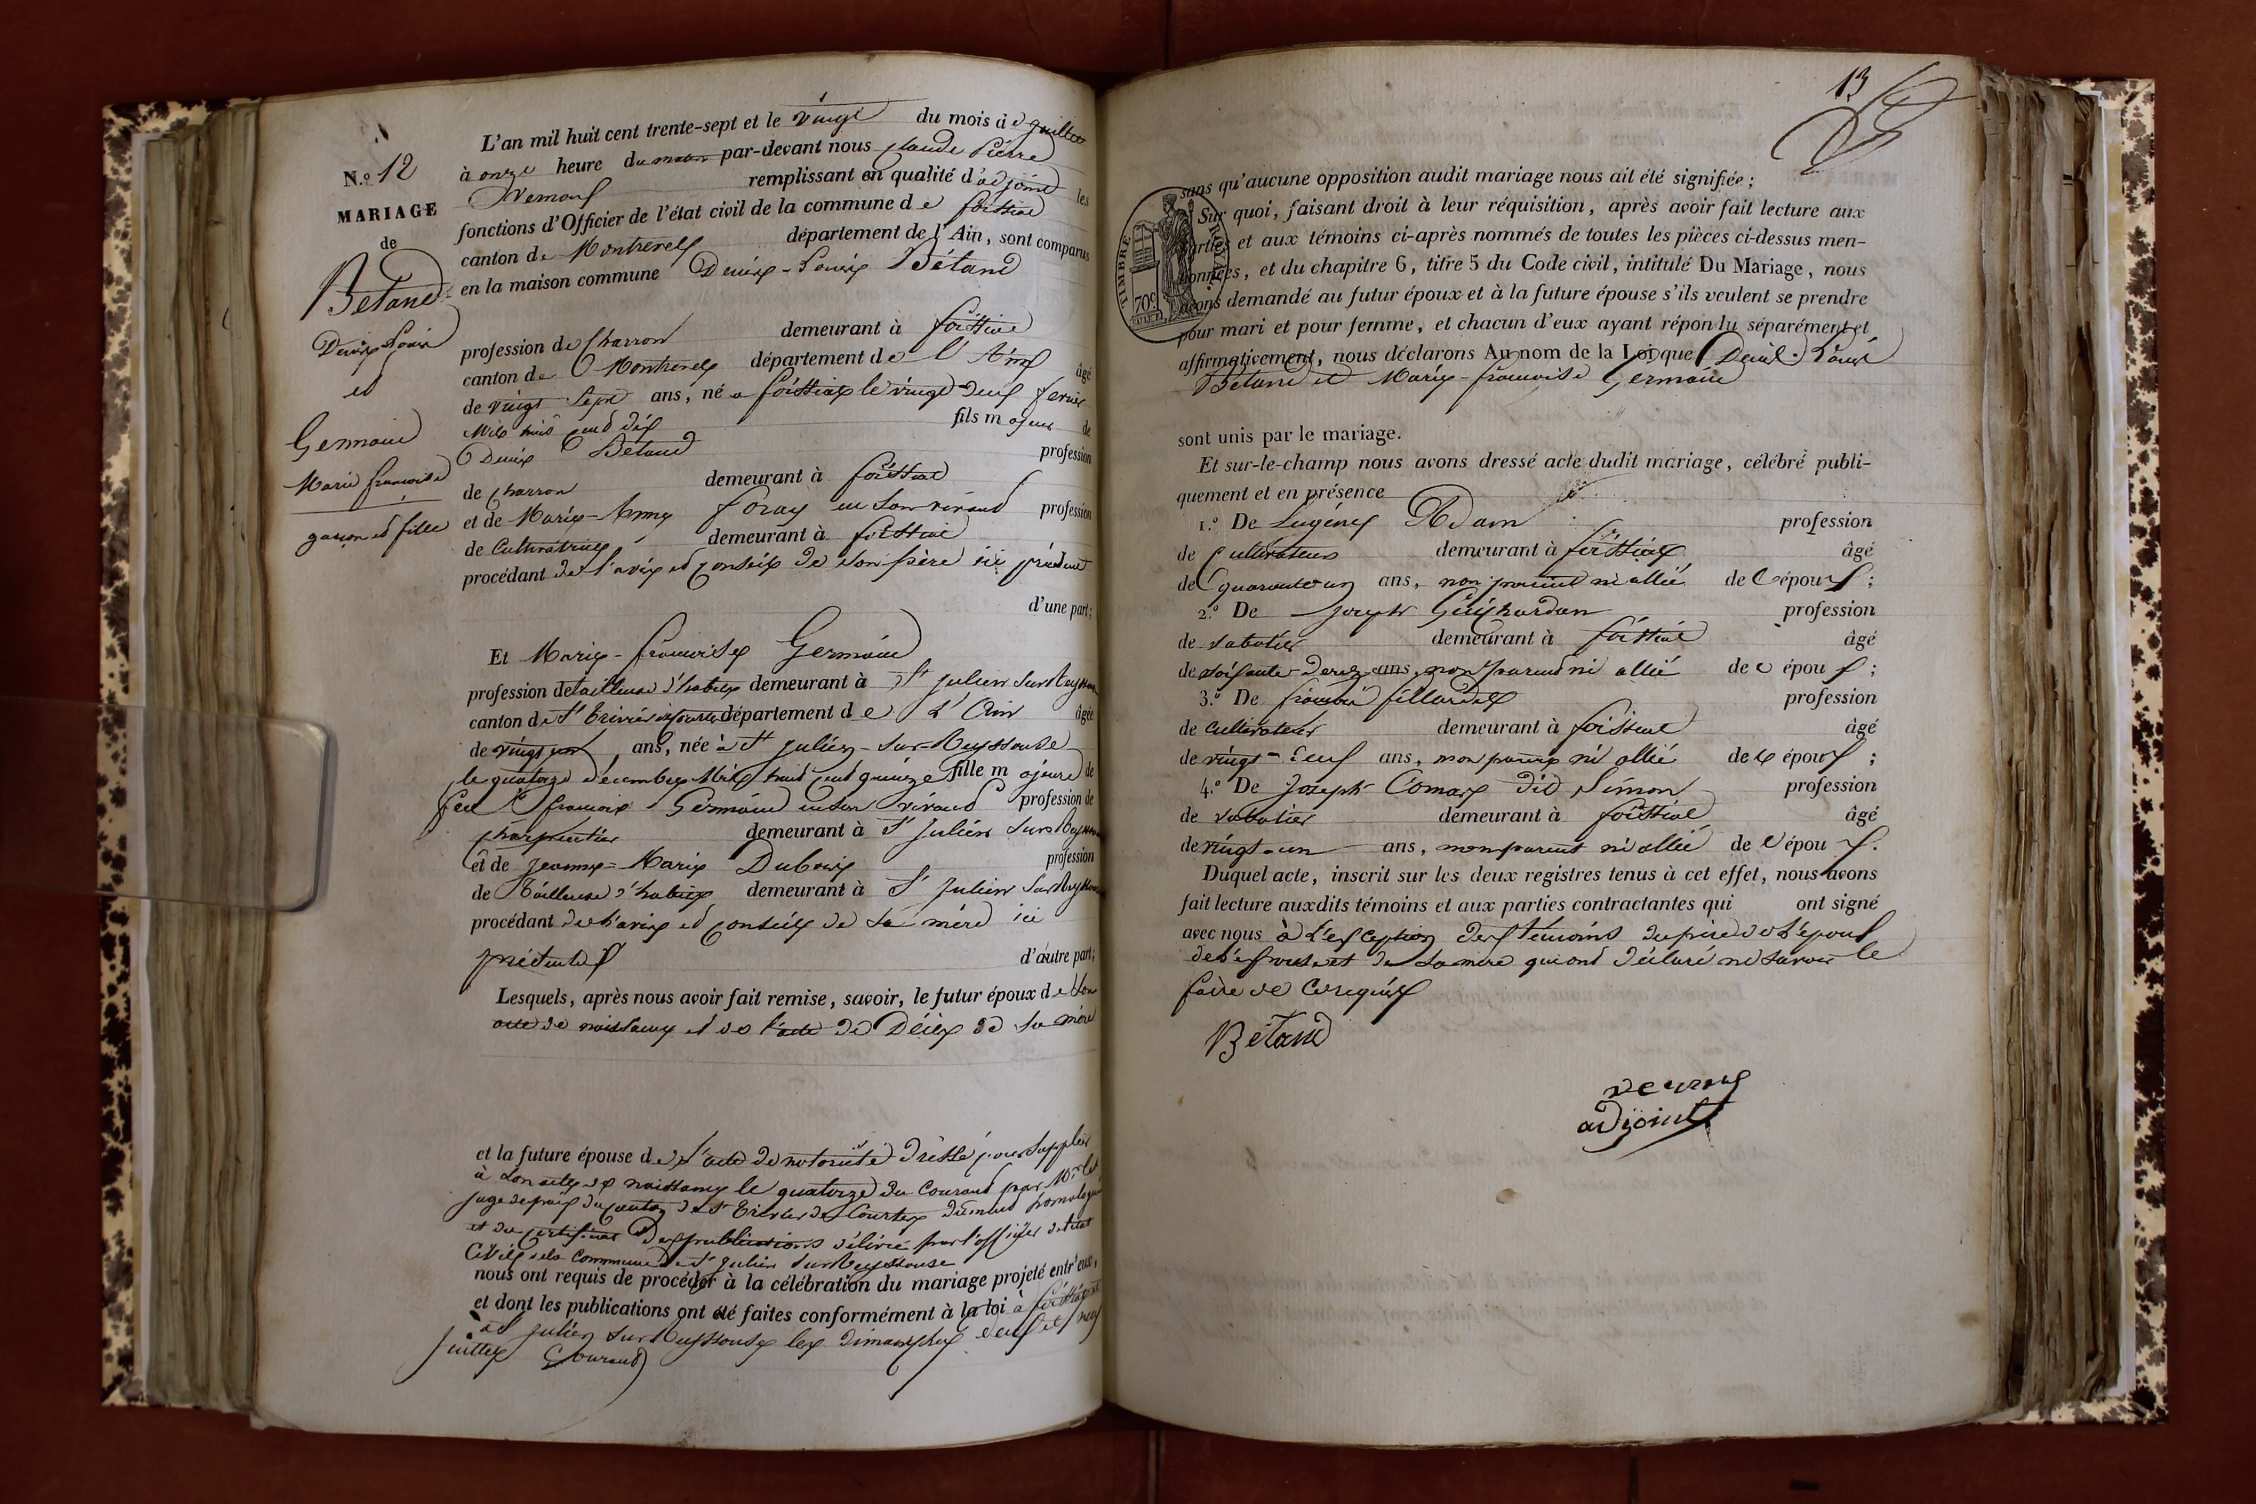 N.º 12
MARIAGE
de
Bétand
Denis Louis
et
Germain
Marie françoise
garçon et fille
L'an mil huit cent trente-sept et le vingt du mois de juillet
à onze heure du matin par-devant nous Claude Pierre
remplissant en qualité d'adjoint les
fonctions d'Officier de l'état civil de la commune de foissiat
canton de Montrevel département de l'Ain, sont comparus
en la maison commune Denis-Louis Bétand
profession de Charron demeurant à foissiat
canton de Montrevel département de l'Ain âgé
de vingt sept ans, né a foissiat le vingt deux fevrier
Mil huit cent dix fils majeur de
Denis Bétand profession
de charron demeurant à foissiat
et de Marie-Anne foray en son vivant profession
de Cultivatrice demeurant à foissiat
procédant de l'avis et conseil de son père ici présent
d'une part;
Et Marie-françoise Germain
profession de tailleuse d'habits demeurant à St julien sur Reyssouze
canton de St trivier de Courtes département de L'Ain âgée
de vingt un ans, née à St julien-sur-Reyssouze
le quatorze décembre Mil huit cent quinze fille majeure de
feu françois Germain en son vivant profession de
charpentier demeurant à St Julien sur Reyssouze
et de jeanne-Marie Dubois profession
de Tailleuse d'habits demeurant à St Julien sur Reyssouze
procédant de l'avis et conseil de sa mère ici
présente d'autre part;
Lesquels, après nous avoir fait remise, savoir, le futur époux de son
acte de naissance et de l'acte de Décès de sa mère
et la future épouse de l'acte de notoriété dressé pour suppléer
à son acte de naissance le quatorze du Courant par Mr le
juge de paix du canton de St trivier de Courtes dument homologué
et du certificat de publications délivré par l'officier de l'état
Civil de la commune de St julien sur Reyssouze
nous ont requis de procéder à la célébration du mariage projeté entr'eux,
et dont les publications ont été faites conformément à la loi à foissiat et
à St julien sur Reyssouze les dimanches deux et neuf
juillet Courant
13
TIMBRE ROYAL
70c
sans qu'aucune opposition audit mariage nous ait été signifiée;
Sur quoi, faisant droit à leur réquisition, après avoir fait lecture aux
parties et aux témoins ci-après nommés de toutes les pièces ci-dessus men-
tionnées, et du chapitre 6, titre 5 du Code civil, intitulé Du Mariage, nous
avons demandé au futur époux et à la future épouse s'ils veulent se prendre
pour mari et pour femme, et chacun d'eux ayant répondu séparément et
affirmativement, nous déclarons Au nom de la Loi que Denis-Louis
Bétand et Marie-françoise Germain
sont unis par le mariage.
Et sur-le-champ nous avons dressé acte dudit mariage, célébré publi-
quement et en présence
1.º De Eugène Adam profession
de Cultivateur demeurant à foissiat âgé
de quarante un ans, non parent ni allié de l'époux;
2.º De joseph Guichardan profession
de sabotier demeurant à foissiat âgé
de ans, non parent ni allié de l'époux;
3.º De françois fillardet profession
de cultivateur demeurant à foissiat âgé
de vingt-neuf ans, non parent ni allié de l'époux;
4.º De Joseph Comas dit Simon profession
de sabotier demeurant à foissiat âgé
de vingt-un ans, non parent ni allié de l'époux.
Duquel acte, inscrit sur les deux registres tenus à cet effet, nous avons
fait lecture auxdits témoins et aux parties contractantes qui ont signé
avec nous à L'exception des témoins du père de L'époux
de l'épouse et de sa mère qui ont déclaré ne savoir le
faire de ce requis
Bétand
adjoint